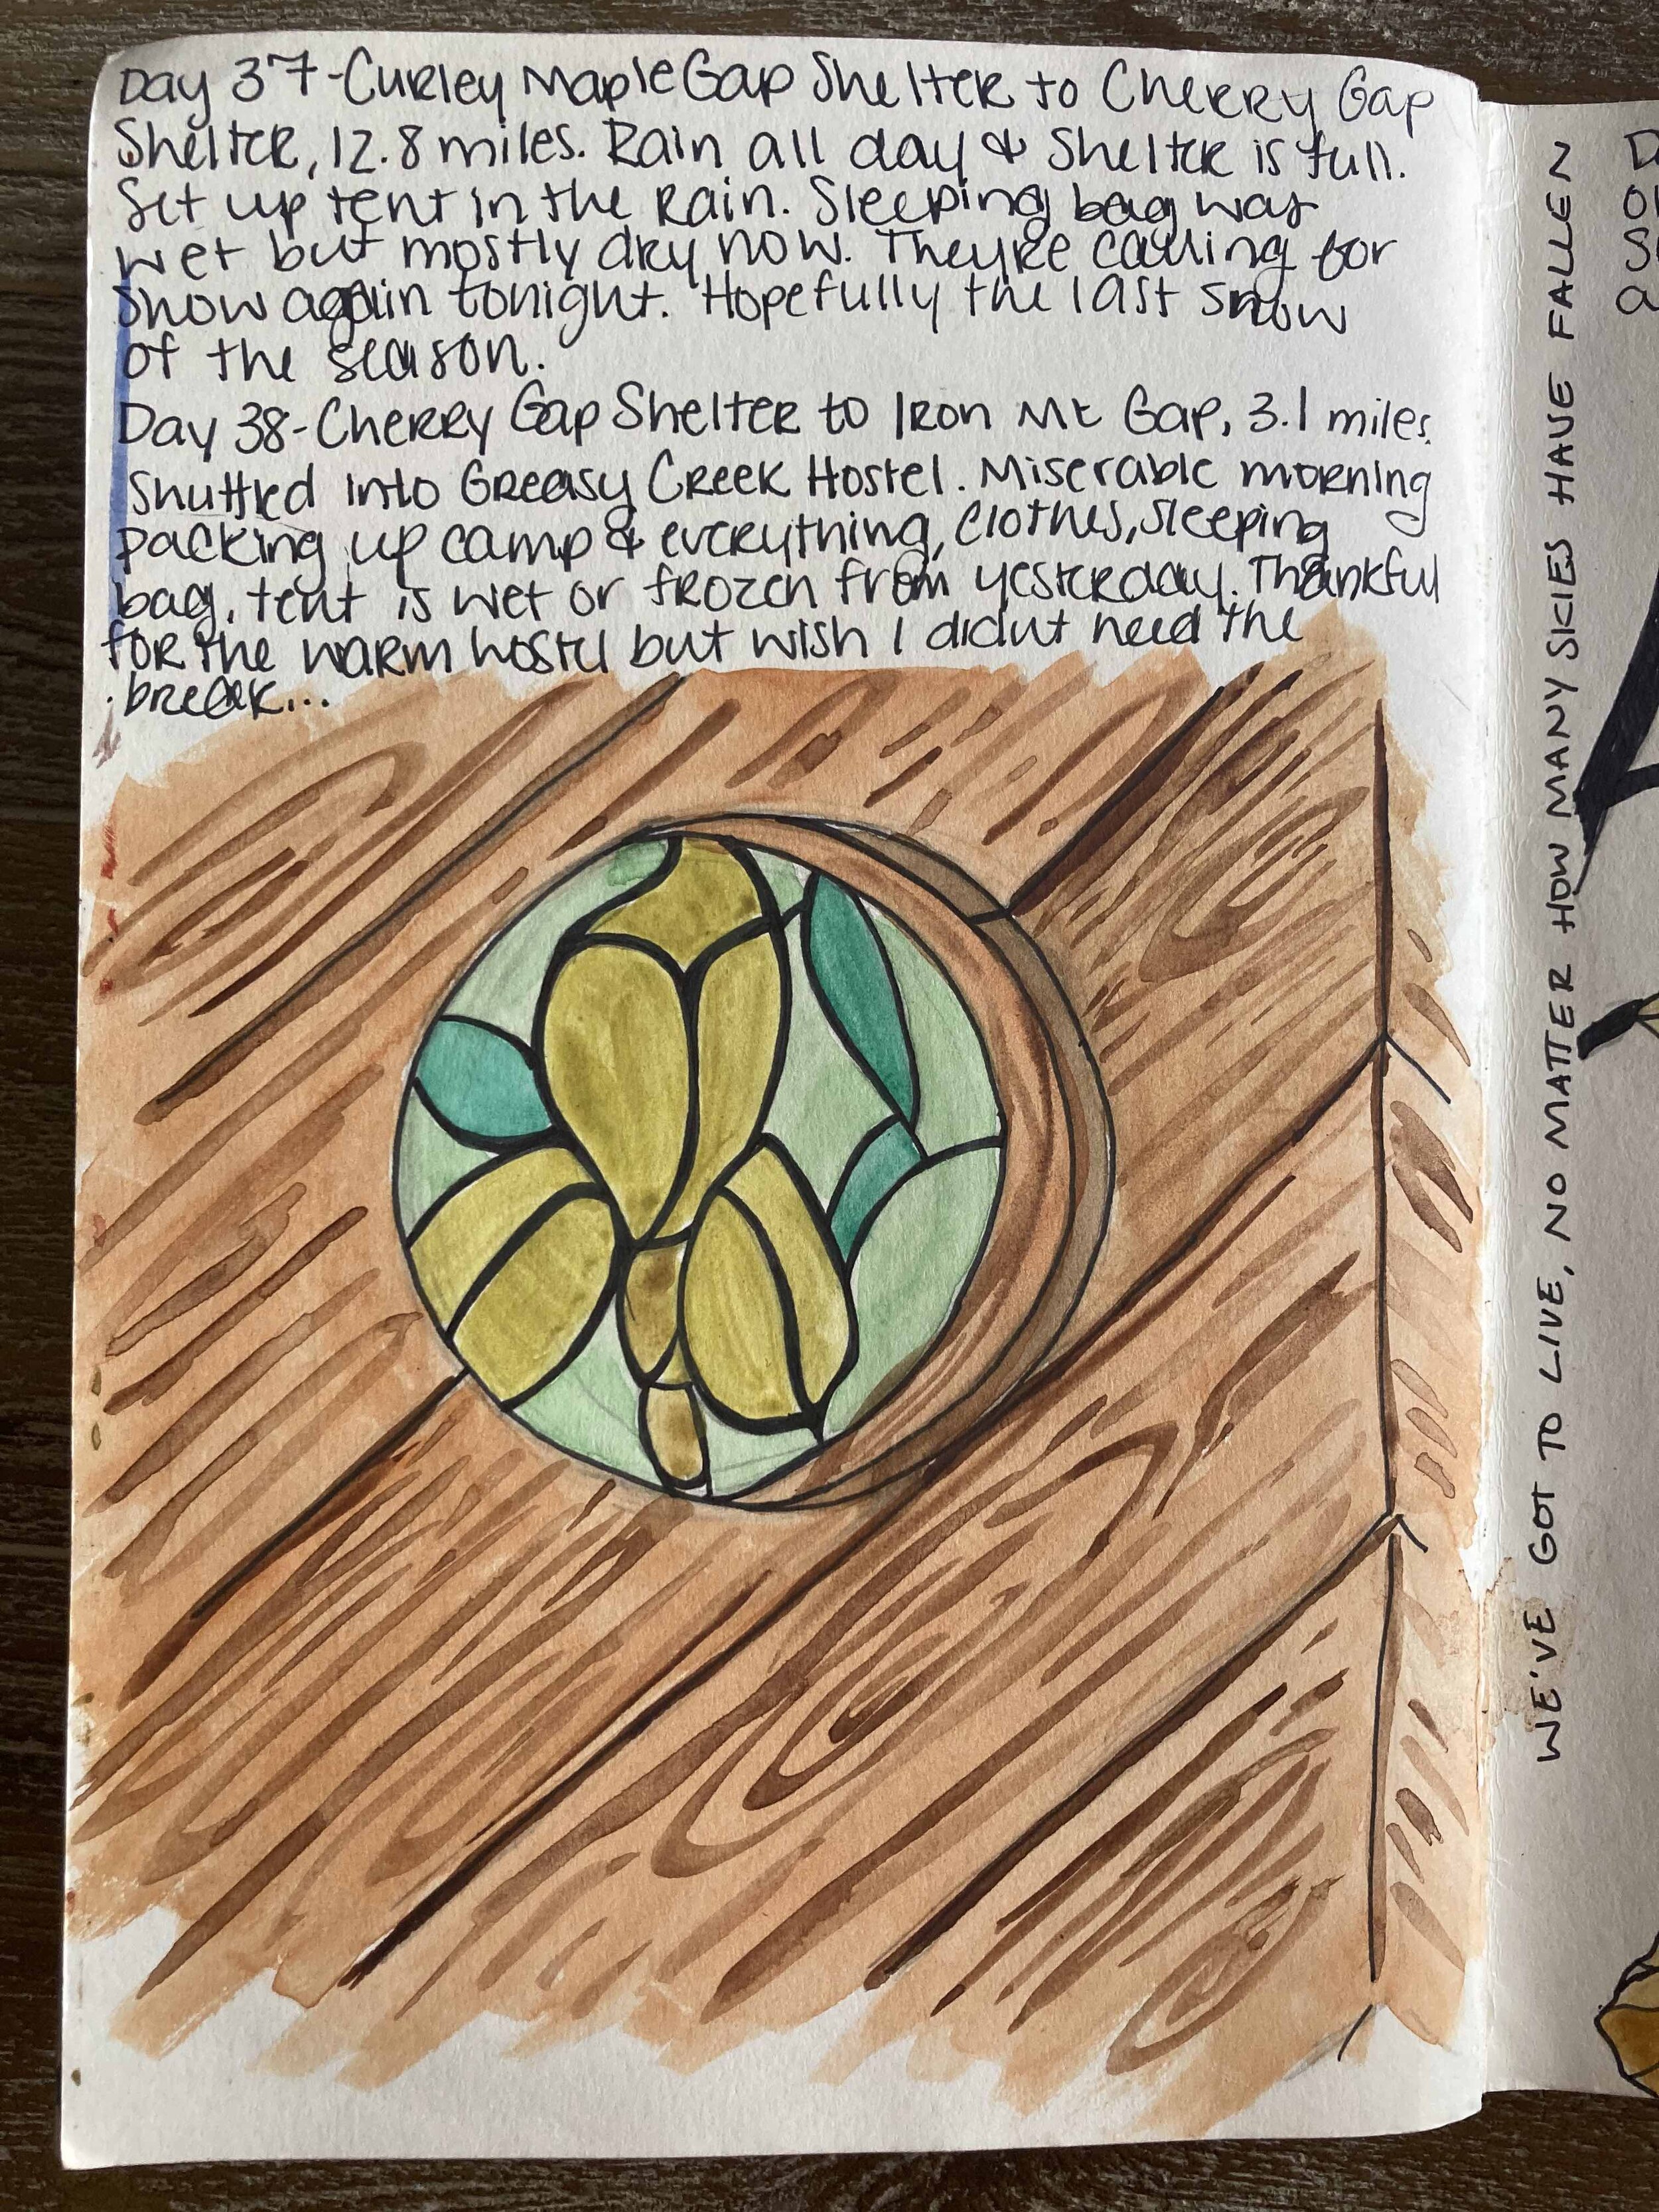 Day 37-Curley Maple Gap Shelter to Cherry Gap
Shelter, 12.8 miles. Rain all day & Shelter is full.
Set up tent in the rain. Sleeping bag was
wet but mostly dry now. They're calling for
snow again tonight. Hopefully the last snow
of the season.
Day 38-Cherry Gap Shelter to Iron Mt Gap, 3.1 miles.
Shuttled into Greasy Creek Hostel. Miserable morning
packing up camp & everything, clothes, sleeping
bag, tent is wet or frozen from yesterday. Thankful
for the warm hostel but wish I didn't need the
break...
WE'VE GOT TO LIVE, NO MATTER HOW MANY SKIES HAVE FALLEN